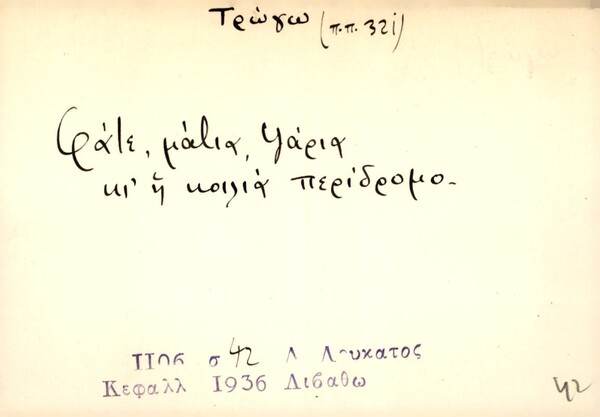 Τρώγω (π.π. 32i)
Φάτε, μάτια, ψάρια
κι' ἡ κοιλιά περίδρομο.
1106 σ 42 Δ Λουκατος
Κεφαλλ 1936 Λιβαθω
42